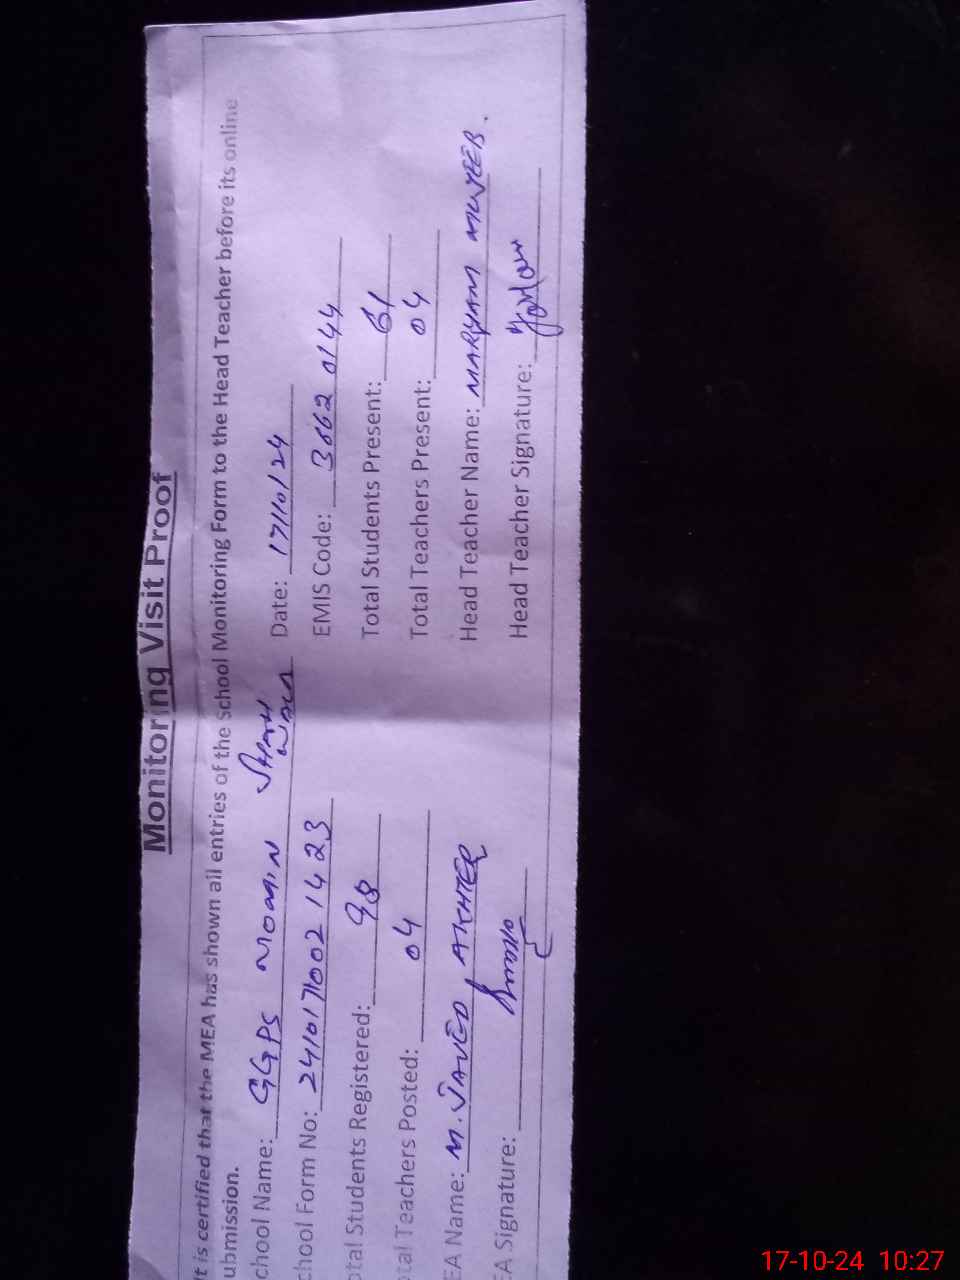 Monitoring Visit Proof
It is certified that the MEA has shown all entries of the school Monitoring Form to the Head Teacher before its online
ubmission.
chool Name: GGPS MOMIN SHAH WALA Date: 17/10/24
chool Form No: 241017002 1423 EMIS Code: 3862 0144
otal Students Registered: 98 Total Students Present: 61
otal Teachers Posted: 04 Total Teachers Present: 04
EA Name: M. JAVED AKHTER Head Teacher Name: MARYAM MUJEEB.
EA Signature: Head Teacher Signature:
17-10-24 10:27